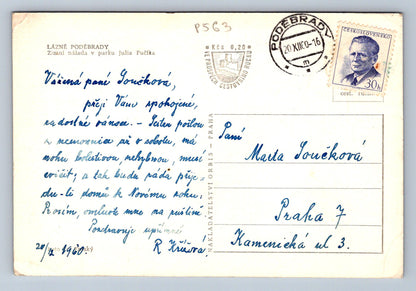 P563
LÁZNĚ PODĚBRADY
Zimní nálada v parku Julia Fučíka
Kčs 0,20
PODĚBRADY
20.XII.60-16
ČESKOSLOVENSKO
30h
Vážená paní Součková,
přeji Vám spokojené,
radostné vánoce. – Jsem pošlou
z nemocnice až v sobotu, má
nohu bolestivou, nehybnou, musí
cvičit, a tak budu ráda přije-
du-li domů k Novému roku.
Prosím, omluvte mne na
Pozdravuje upřímně
R. Křížová
20/XII 1960.
Paní
Marta Součková
Praha 7
Kamenická ul 3.
NAKLADATELSTVÍ ORBIS - PRAHA